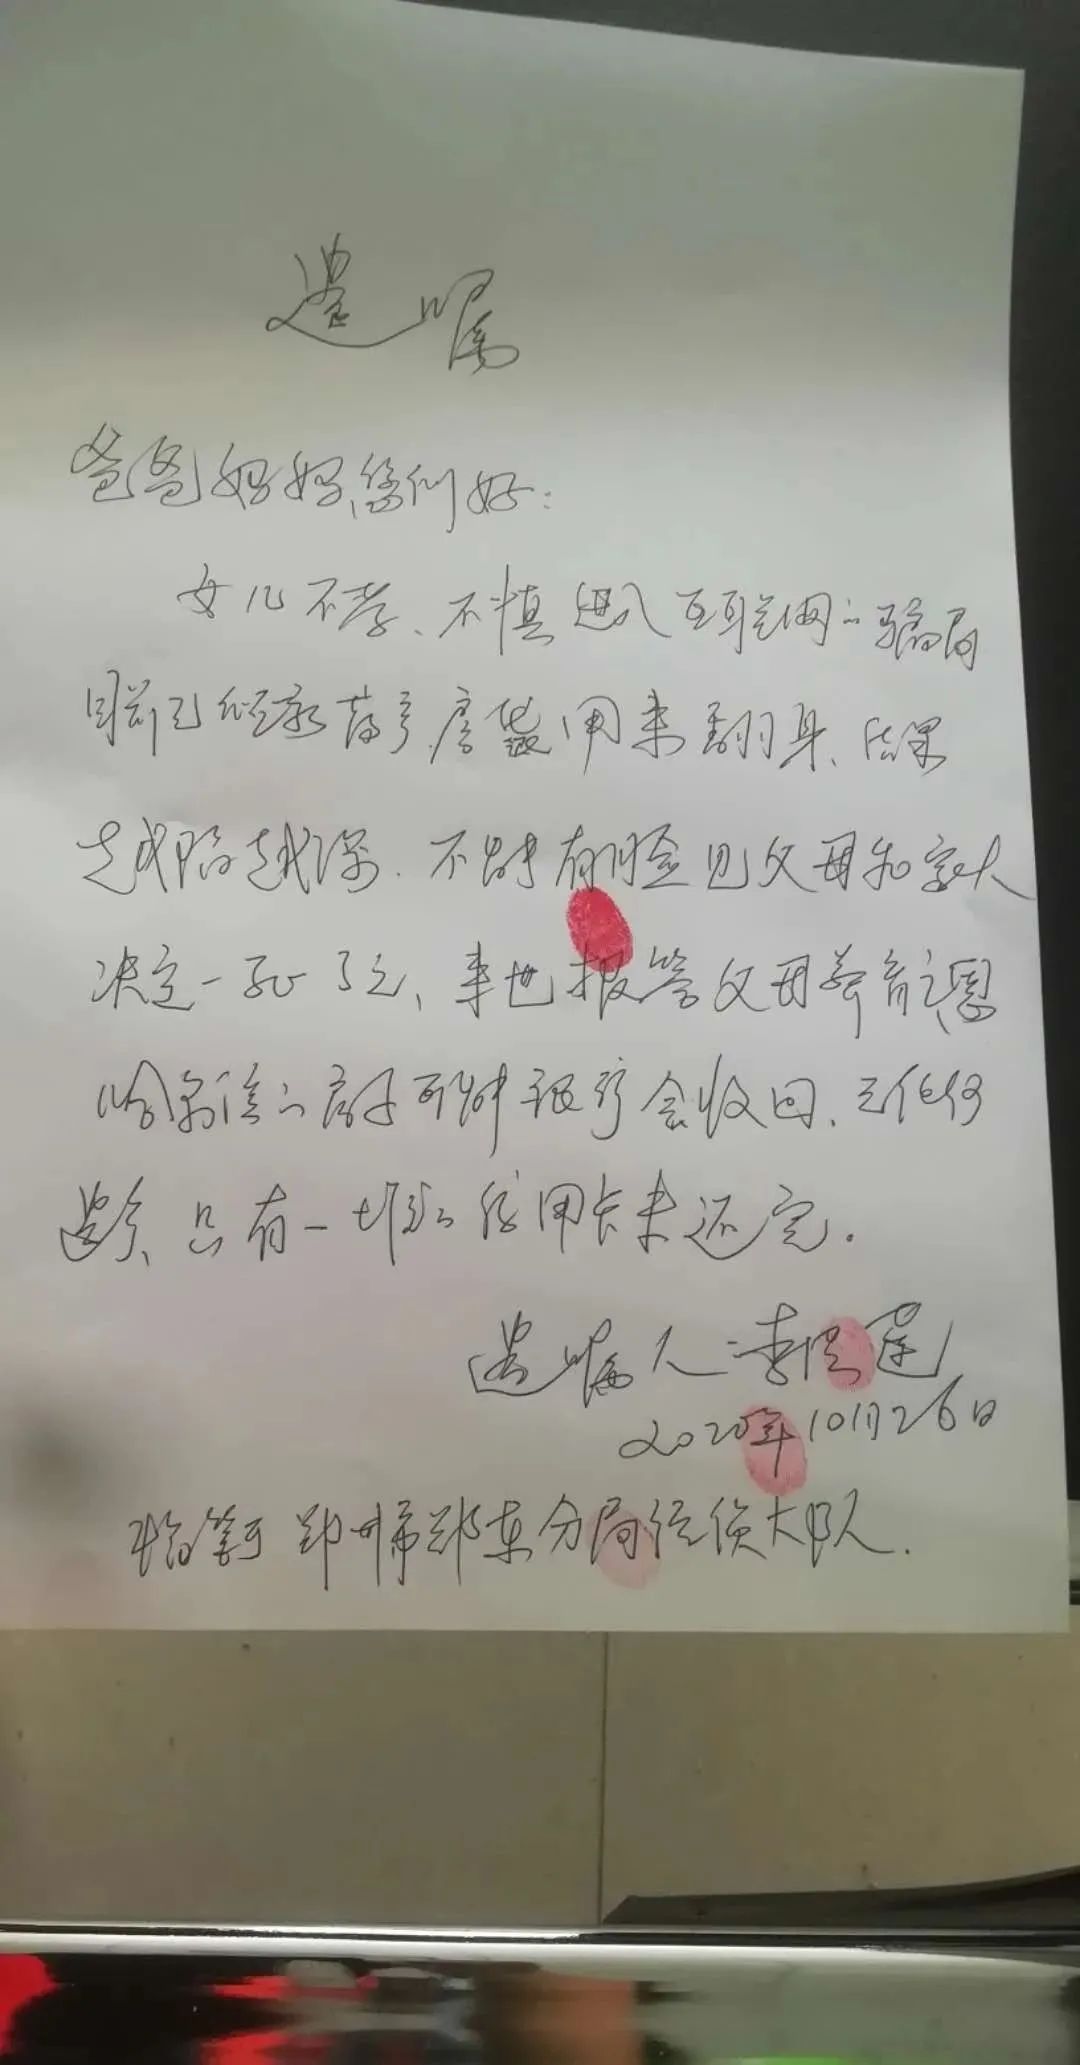 遗嘱
爸爸妈妈您们好：
女儿不孝、不慎进入互联网的骗局
目前已倾家荡产.房贷用来翻身、结果
越陷越深.不能有脸见父母和家人
决定一死了之、来世报答父母养育之恩
哈尔滨的房子可能银行会收回、无任何
遗产、只有一堆的信用卡未还完.
遗嘱人:李
2020年10月26日
郑州市郑东分局经侦大队.